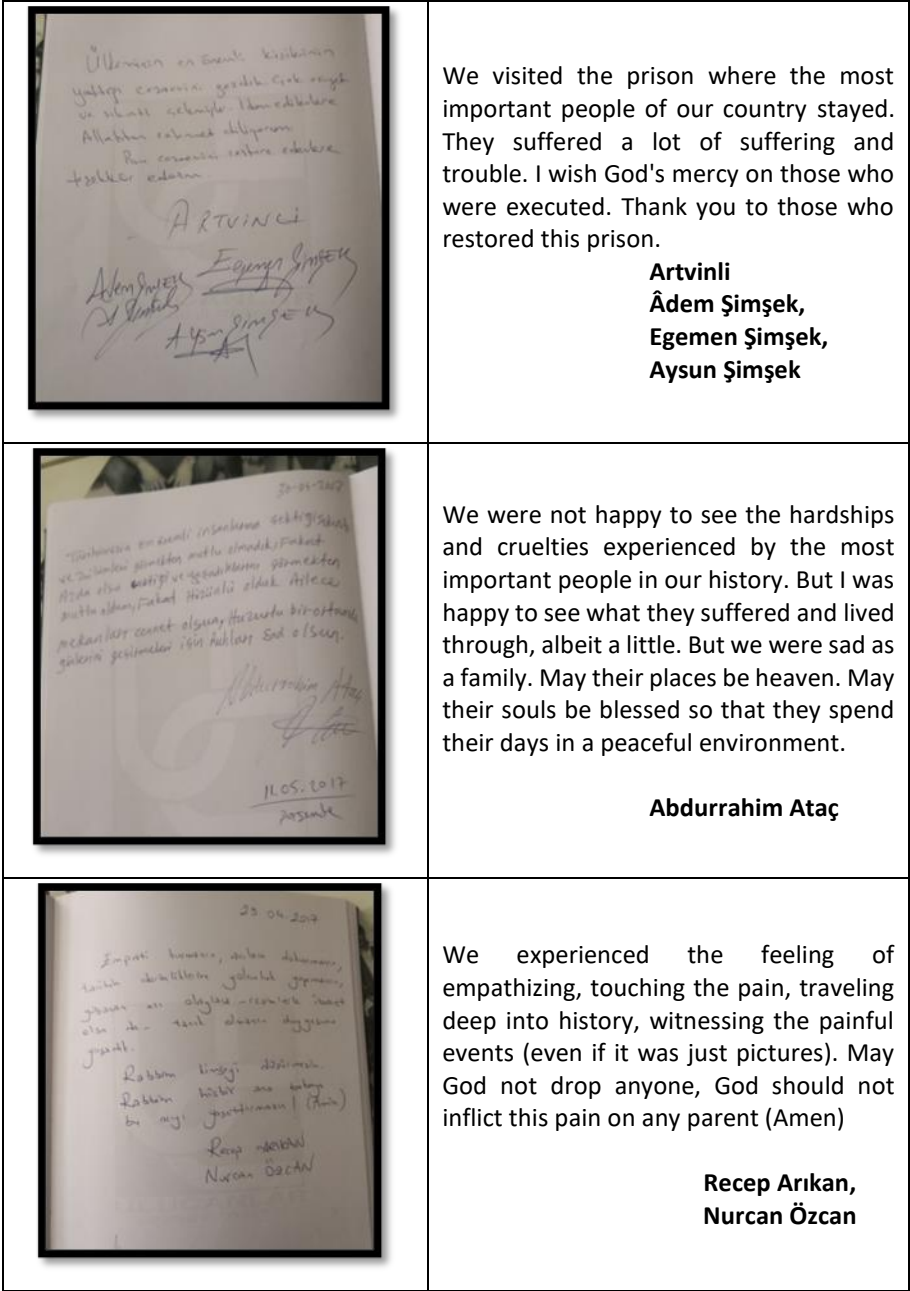 Ülkemizin en önemli kişilerinin
yattığı cezaevini gezdik. Çok eziyet
ve sıkıntı çekmişler. İdam edilenlere
Allahtan rahmet diliyorum
Bu cezaevini restore edenlere
teşekkür ederim.
ARTVİNLİ
Adem ŞİMŞEK Egemen ŞİMŞEK
Aysun ŞİMŞEK
We visited the prison where the most
important people of our country stayed.
They suffered a lot of suffering and
trouble. I wish God's mercy on those who
were executed. Thank you to those who
restored this prison.
Artvinli
Âdem Şimşek,
Egemen Şimşek,
Aysun Şimşek
en önemli insanlarına çektiği
ve zulümleri görmekten mutlu olmadık, Fakat
Azda olsa çektiği ve yaşadıklarını görmekten
mutlu oldum, Fakat Hüzünlü olduk Ailece
mekanları cennet olsun, Huzurlu bir ortamda
günlerini geçirmeleri için Ruhları Şad olsun.
Abdurrahim Ataç
11.05.2017
We were not happy to see the hardships
and cruelties experienced by the most
important people in our history. But I was
happy to see what they suffered and lived
through, albeit a little. But we were sad as
a family. May their places be heaven. May
their souls be blessed so that they spend
their days in a peaceful environment.
Abdurrahim Ataç
29.04.2017
Empati kurmanın, acılara dokunmanın,
tarihin derinliklerine yolculuk yapmanın,
yaşanan acı olaylara - resimlerle ibaret
olsa da - tanık olmanın duygusunu
yaşadık.
Rabbim kimseyi düşürmesin.
Rabbim hiçbir ana babaya
bu acıyı yaşattırmasın! (Amin)
Recep ARIKAN
Nurcan ÖZCAN
We experienced the feeling of
empathizing, touching the pain, traveling
deep into history, witnessing the painful
events (even if it was just pictures). May
God not drop anyone, God should not
inflict this pain on any parent (Amen)
Recep Arıkan,
Nurcan Özcan